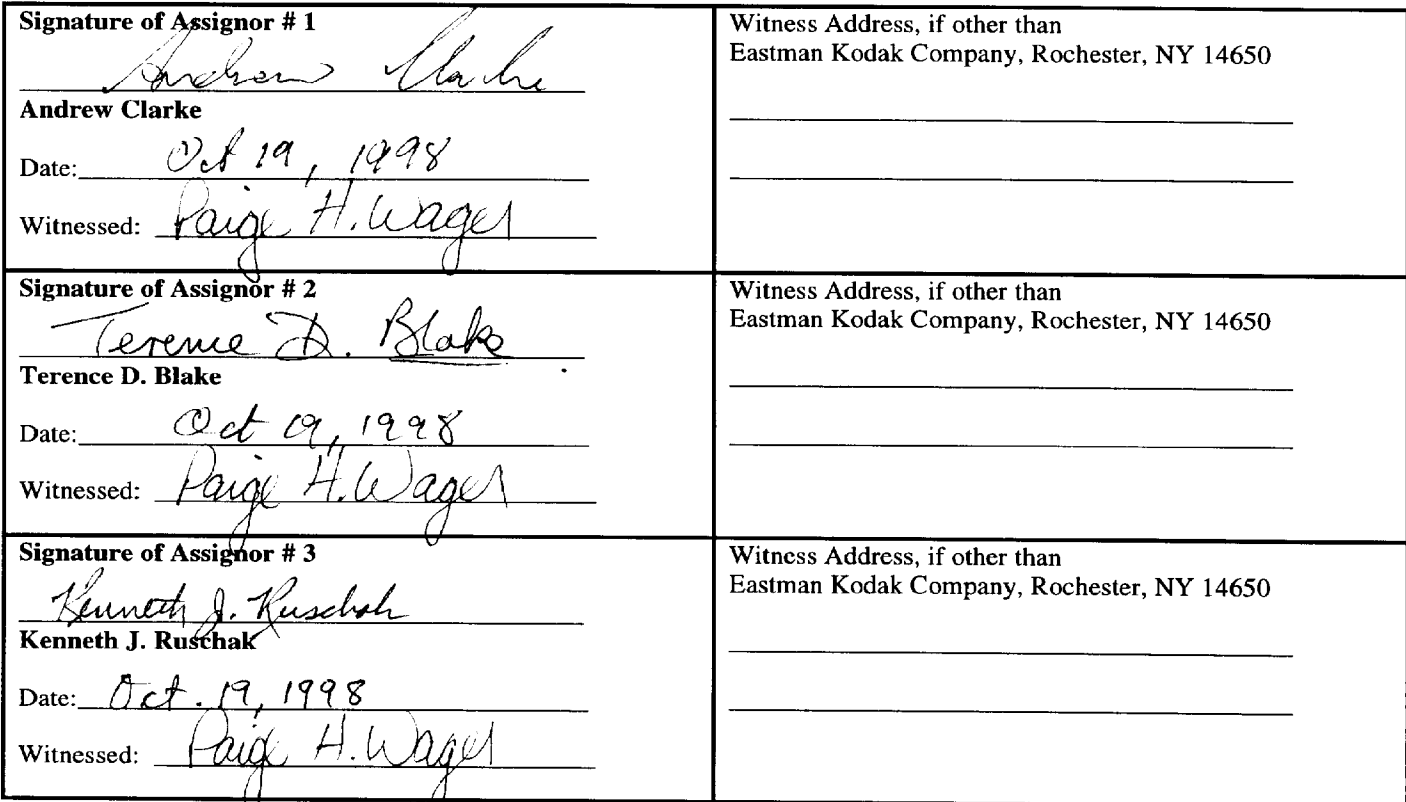 Signature of Assignor # 1
Andrew Clarke
Andrew Clarke
Date: Oct 19, 1998
Witnessed: Paige H. Wager
Witness Address, if other than
Eastman Kodak Company, Rochester, NY 14650
Signature of Assignor # 2
Terence D. Blake
Terence D. Blake
Date: Oct 19, 1998
Witnessed: Paige H. Wager
Witness Address, if other than
Eastman Kodak Company, Rochester, NY 14650
Signature of Assignor # 3
Kenneth J. Ruschak
Kenneth J. Ruschak
Date: Oct. 19, 1998
Witnessed: Paige H. Wager
Witness Address, if other than
Eastman Kodak Company, Rochester, NY 14650